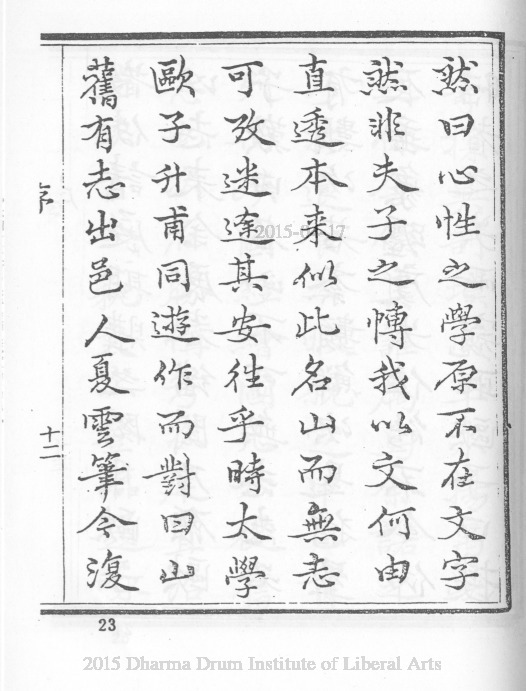 然曰心性之學原不在文字
然非夫子之博我以文何由
直透本来似此名山而無志
可攷迷途其安往乎時太學
歐子升甫同遊作而對曰山
舊有志出邑人夏雲筆今復
序
十二
23
2015 Dharma Drum Institute of Liberal Arts